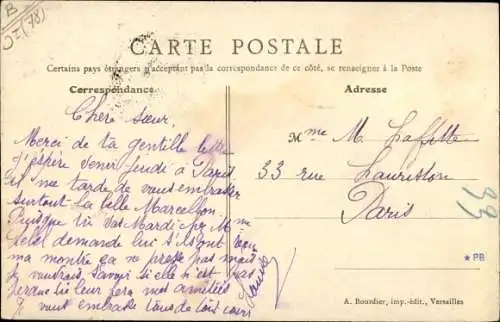 B
SZ (78)
CARTE POSTALE
Certains pays étrangers n'acceptant pas la correspondance de ce côté, se renseigner à la Poste
Correspondance
Adresse
Chère sœur.
Merci de ta gentille lettre
j'espère venir jeudi à Paris
il me tarde de vous embrasser
surtout la belle Marcelle
Puisque tu vas Mardi chez Mme
demande lui s'ils ont reçu
ma montre ça ne presse pas mais
je voudrais savoir si elle n'est pas
perdue tu leur fera mes amitiés
Je vous embrasse tous de tout cœur
Mme M. Laffitte
33 rue Lauriston
Paris
39
*PB
A. Bourdier, imp.-édit., Versailles